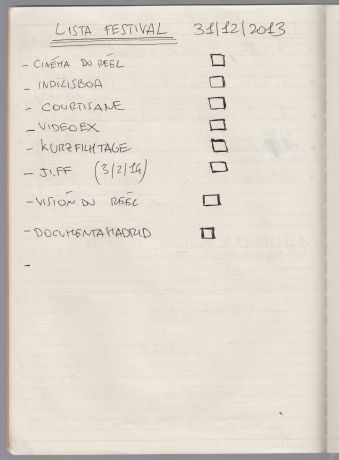 LISTA FESTIVAL 31/12/2013
- CINÉMA DU RÉEL
- INDILISBOA
- COURTISANE
- VIDEOEX
- KURZFILMTAGE
- JIFF (3/2/14)
- VISION DU RÉEL
- DOCUMENTAMADRID
-